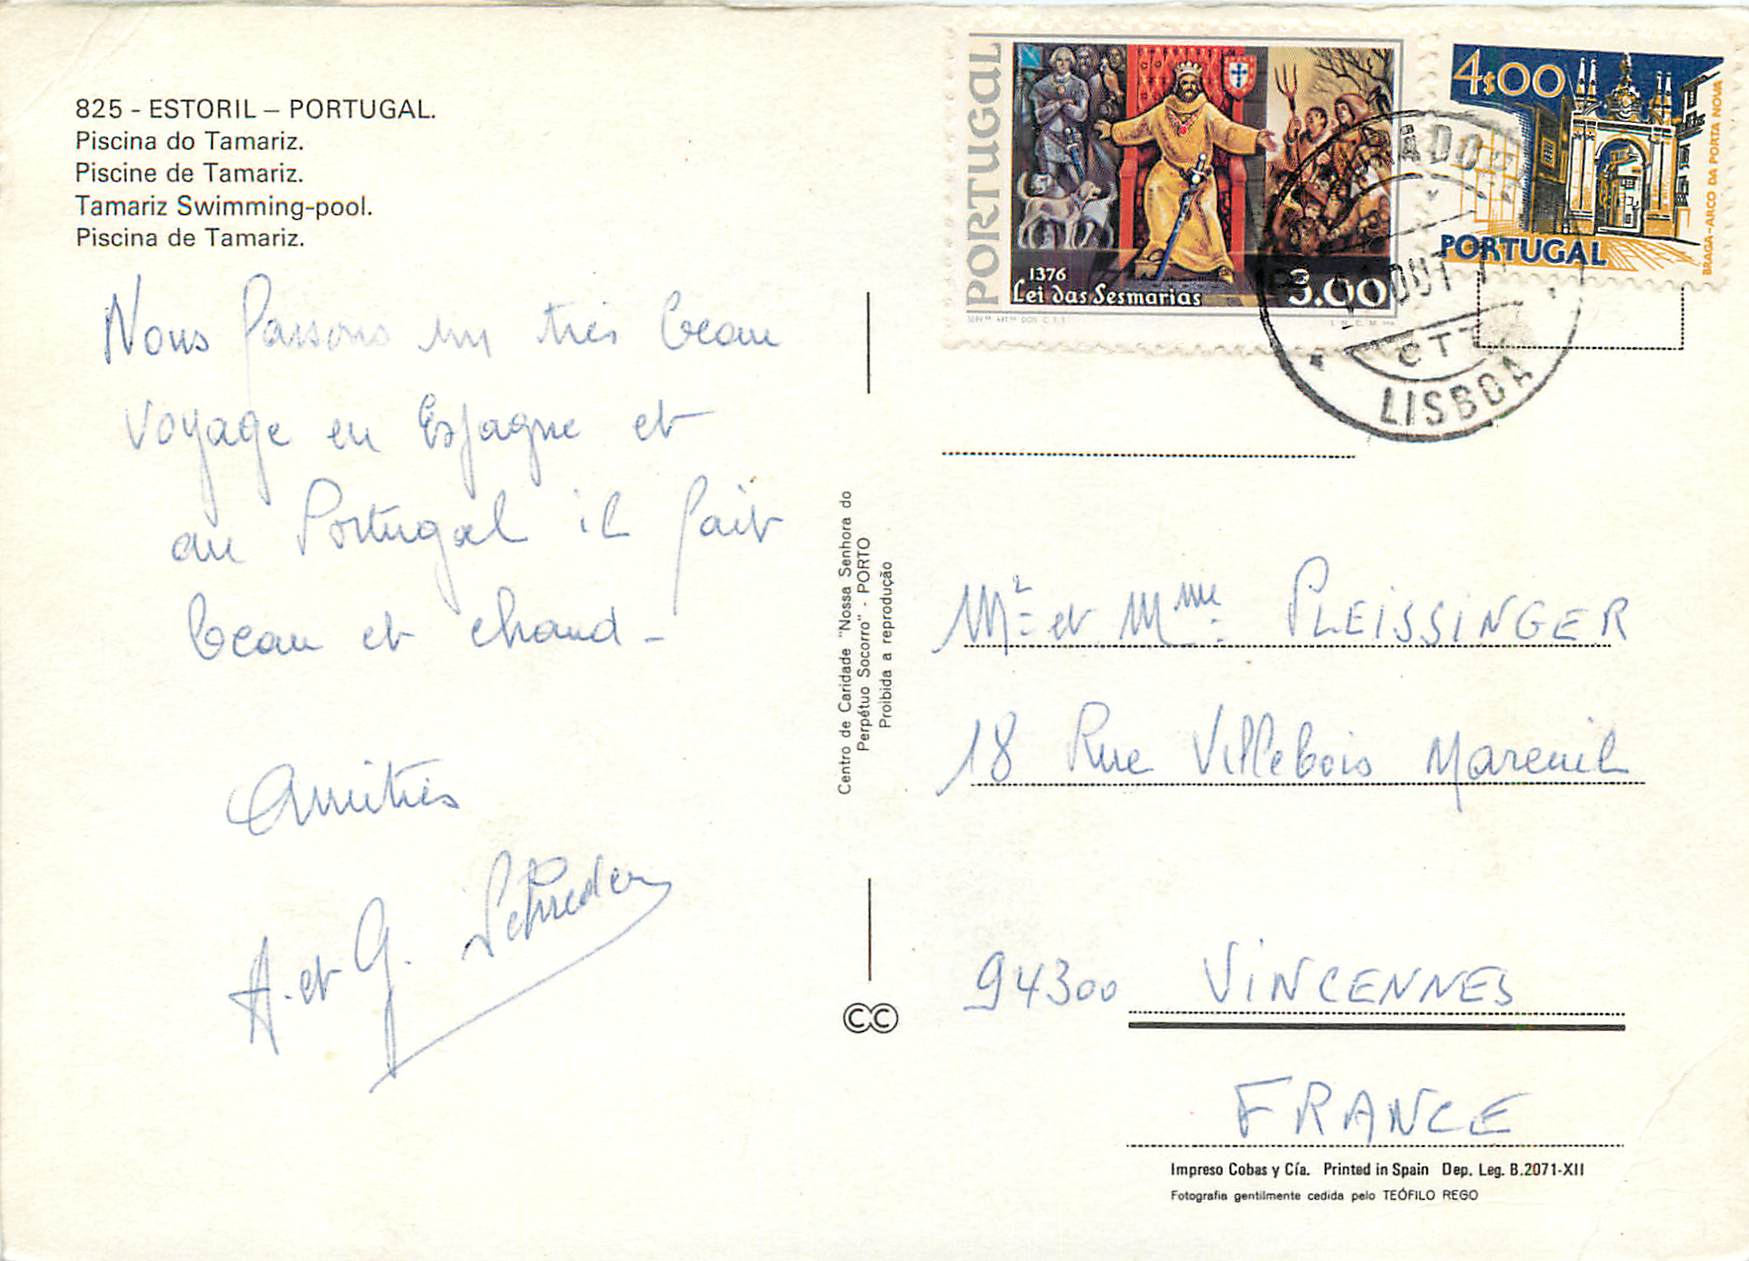 825 - ESTORIL – PORTUGAL.
Piscina do Tamariz.
Piscine de Tamariz.
Tamariz Swimming-pool.
Piscina de Tamariz.
Nous passons un très beau
voyage en Espagne et
au Portugal il fait
beau et chaud -
Amitiés
A. et G. Schreder
Centro de Caridade "Nossa Senhora do
Perpétuo Socorro" - PORTO
Proibida a reprodução
CC
PORTUGAL
1376
Lei das Sesmarias
3.00
4$00
PORTUGAL
BRAGA-ARCO DA PORTA NOVA
OUT
CTT
LISBOA
Mr et Mme PLEISSINGER
18 Rue Villebois Mareuil
94300 VINCENNES
FRANCE
Impreso Cobas y Cía. Printed in Spain Dep. Leg. B.2071-XII
Fotografia gentilmente cedida pelo TEÓFILO REGO